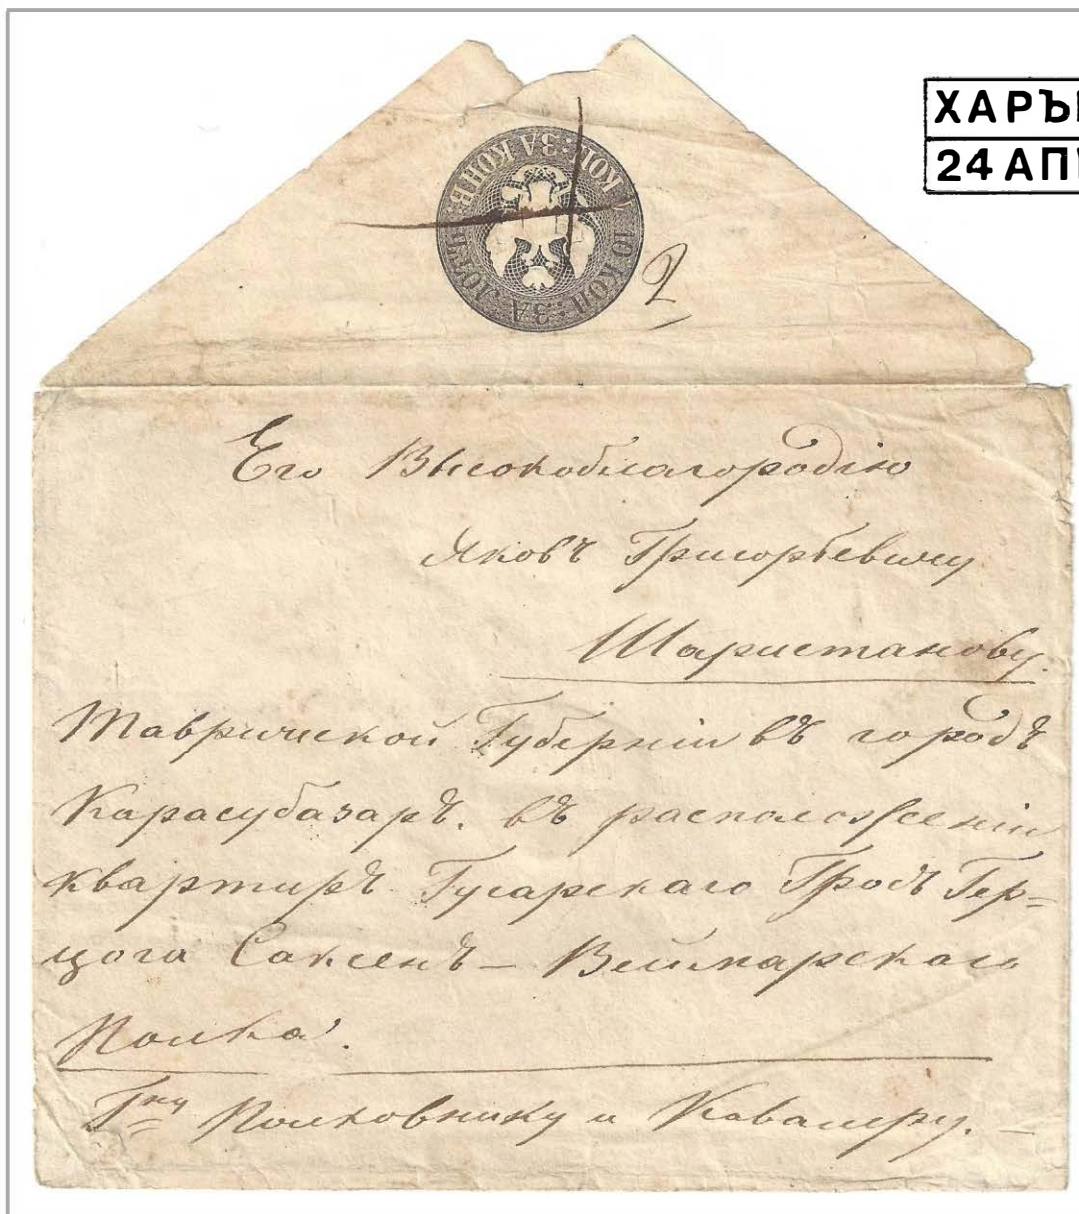 ХАРЬ
24 АП
10 КОП: ЗА ЛОТЪ КОП: ЗА КОНВ:
2
Его Высокоблагородію
Яковъ Григорьевичу
Шаристанову.
Таврической Губерніи въ городѣ
Карасубазарѣ. въ расположеніи
квартирѣ Гусарскаго Грос Гер=
цога Саксенъ – Веймарскаго
Полка.
Гну Полковнику и Кавалеру. –